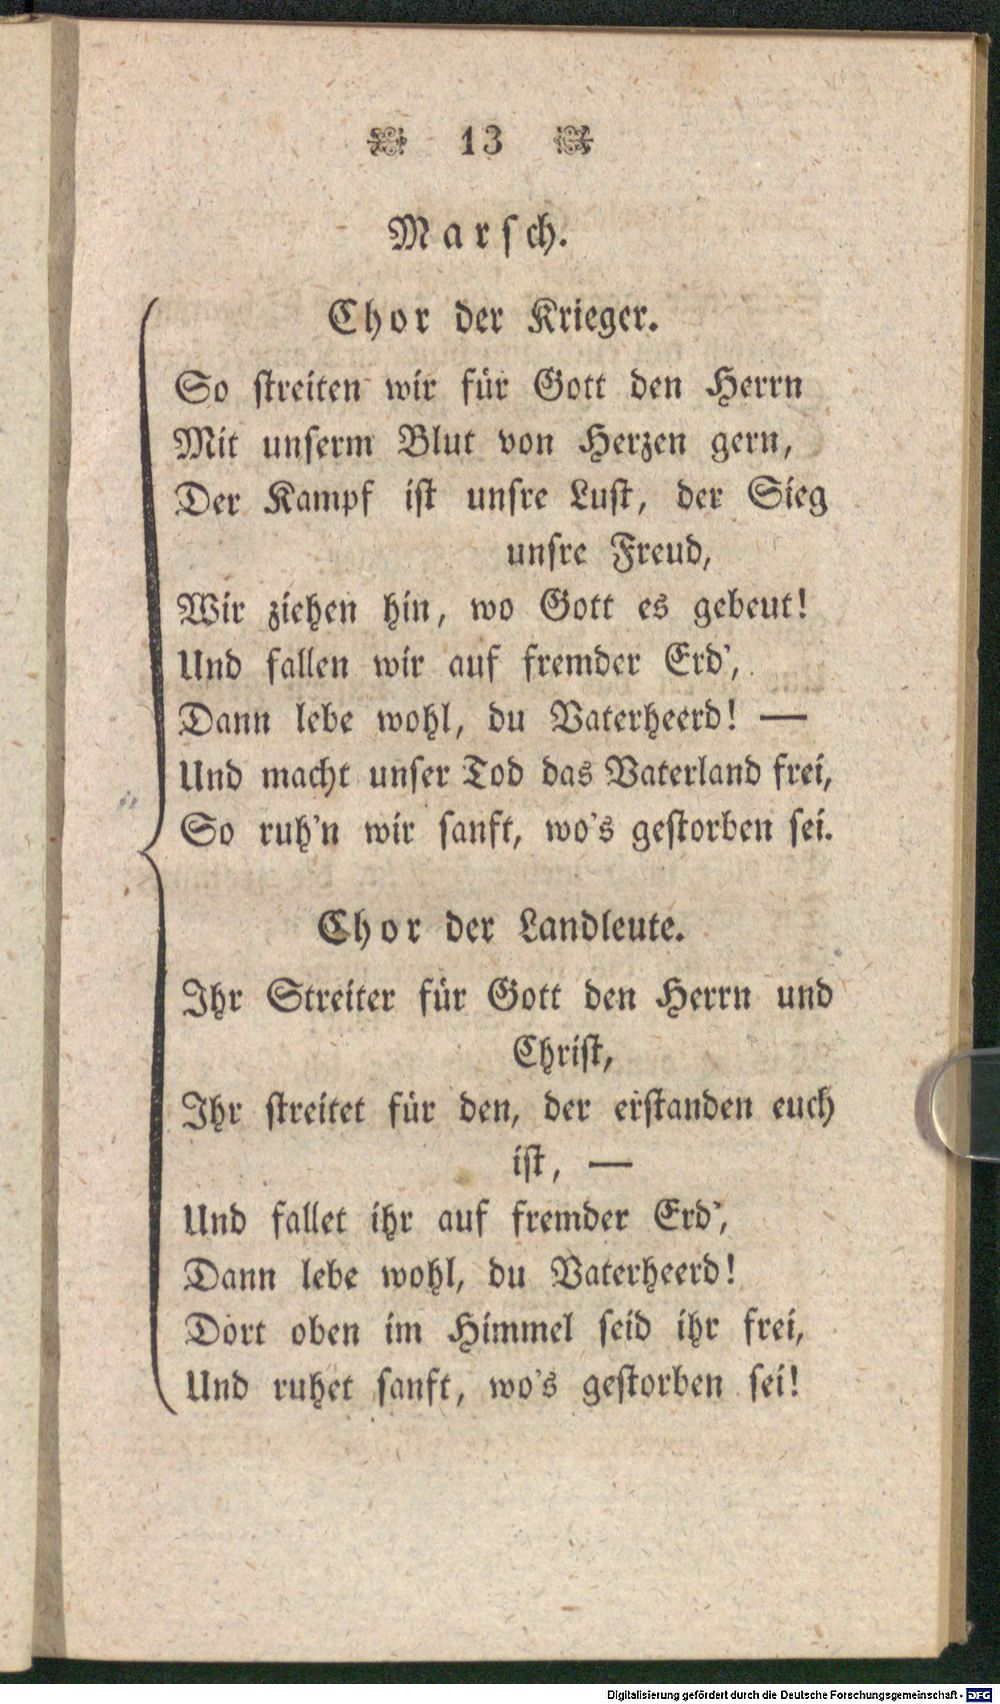 13
Marsch.
Chor der Krieger.
So streiten wir für Gott den Herrn
Mit unserm Blut von Herzen gern,
Der Kampf ist unsre Lust, der Sieg
unsre Freud,
Wir ziehen hin, wo Gott es gebeut!
Und fallen wir auf fremder Erd’,
Dann lebe wohl, du Vaterheerd! —
Und macht unser Tod das Vaterland frei,
So ruh’n wir sanft, wo’s gestorben sei.
Chor der Landleute.
Ihr Streiter für Gott den Herrn und
Christ,
Ihr streitet für den, der erstanden euch
ist, —
Und fallet ihr auf fremder Erd’,
Dann lebe wohl, du Vaterheerd!
Dort oben im Himmel seid ihr frei,
Und ruhet sanft, wo’s gestorben sei!
Digitalisierung gefördert durch die Deutsche Forschungsgemeinschaft - DFG